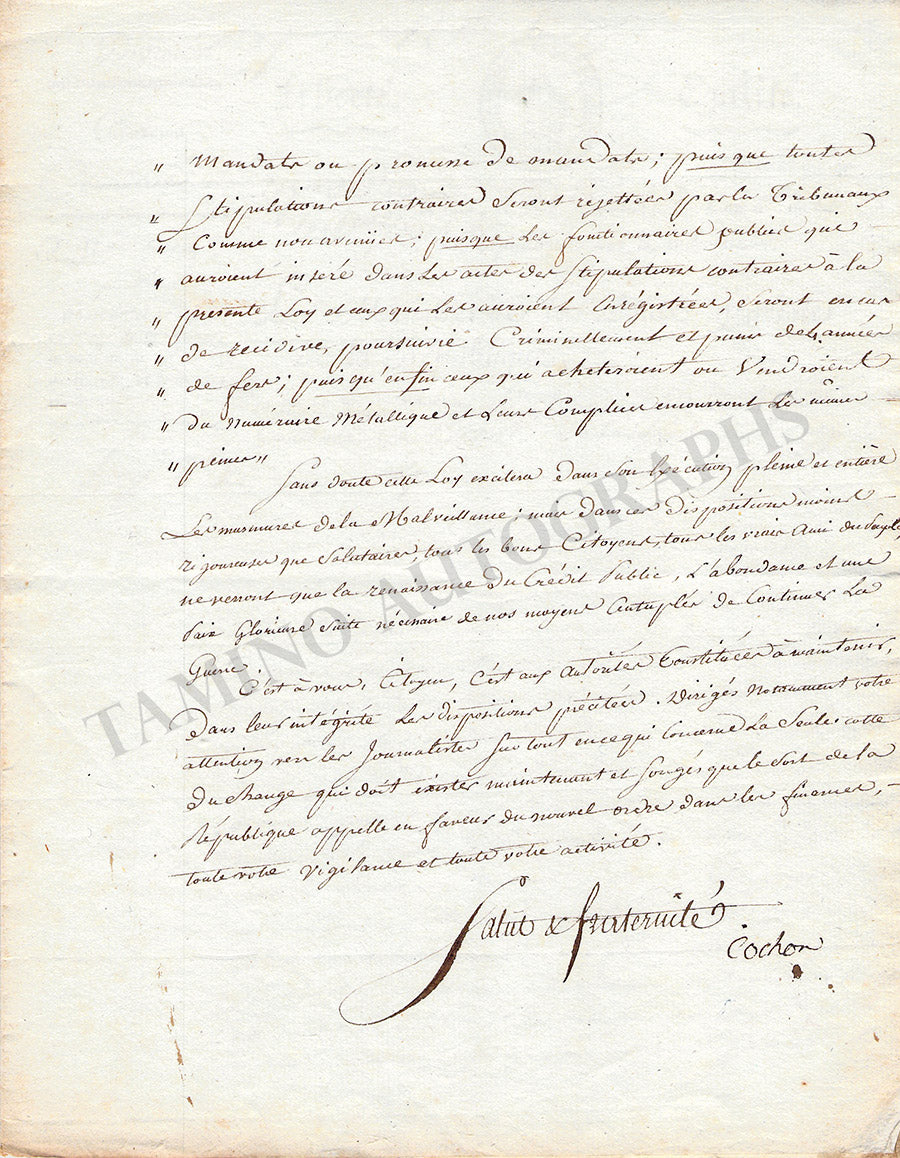 " Mandats ou promesse de mandats ; puis que toutes
" Stipulations contraires Seront rejettées par les Tribunaux
" Comme non avenües ; puisque Les fonctionnaires publics qui
" auroient inséré dans Les actes des Stipulations contraires à la
" présente Loy et ceux qui Les auroient Enrégistrées, Seront en cas
" de récidive, poursuivis Criminellement et punis de 4 années
" de fers ; puis qu'enfin ceux qui acheteroient ou Vendroient
" Du Numéraire Métallique et Leurs Complices encourront Les mêmes
" peines "
Sans doute cette Loy excitera dans Son Exécution pleine et entière
Les murmures de la Malveillance ; mais dans ces dispositions moins
rigoureuses que Salutaires, tous les bons Citoyens, tous les vrais Amis du Peuple,
ne verront que la renaissance du Crédit Public, L'abondance et une
Paix Glorieuse Suite nécéssaire de nos moyens Centuplés de Continuer La
Guerre.
C'est à vous, Citoyen, c'est aux Autorités Constituées à maintenir,
Dans leur intégrité Les dispositions précitées. Dirigés Notamment votre
attention vers les Journalistes Sur tout en ce qui Concerne La Seule cotte
Du change qui doit éxister maintenant et Songés que le Sort de la
République appelle en faveur du nouvel ordre dans les finances, -
toute votre Vigilance et toute votre activité.
Salut & fraternité
Cochon
TAMINO AUTOGRAPHS